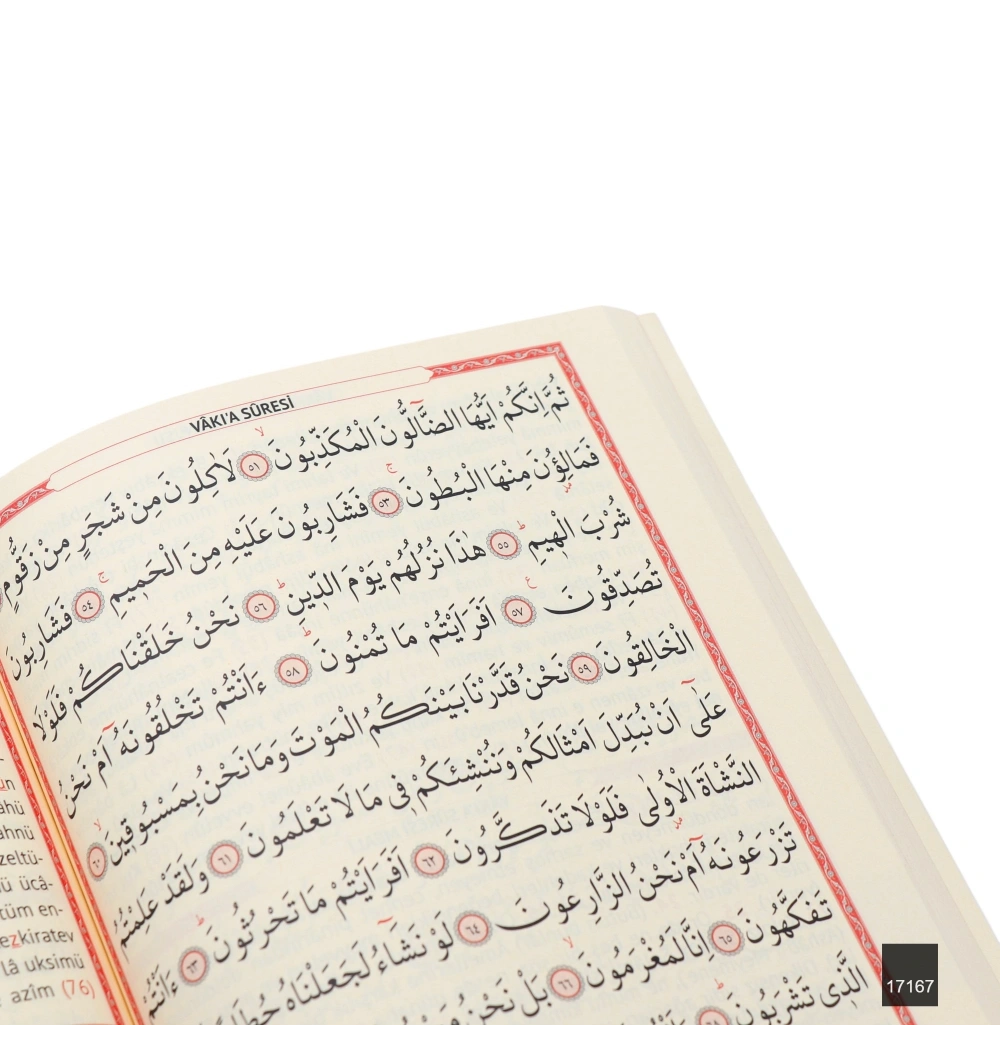 VÂKI'A SÛRESİ
ثُمَّ اِنَّكُمْ اَيُّهَا الضَّٓالُّونَ الْمُكَذِّبُونَۙ ﴿٥١﴾ لَاٰكِلُونَ مِنْ شَجَرٍ مِنْ زَقُّومٍۙ
فَمَالِؤُ۫نَ مِنْهَا الْبُطُونَۚ ﴿٥٣﴾ فَشَارِبُونَ عَلَيْهِ مِنَ الْحَم۪يمِۚ ﴿٥٤﴾ فَشَارِبُونَ
شُرْبَ الْه۪يمِۜ ﴿٥٥﴾ هٰذَا نُزُلُهُمْ يَوْمَ الدّ۪ينِۜ ﴿٥٦﴾ نَحْنُ خَلَقْنَاكُمْ فَلَوْلَا
تُصَدِّقُونَ ﴿٥٧﴾ اَفَرَاَيْتُمْ مَا تُمْنُونَۜ ﴿٥٨﴾ ءَاَنْتُمْ تَخْلُقُونَهُٓ اَمْ نَحْنُ
الْخَالِقُونَ ﴿٥٩﴾ نَحْنُ قَدَّرْنَا بَيْنَكُمُ الْمَوْتَ وَمَا نَحْنُ بِمَسْبُوق۪ينَۙ ﴿٦٠﴾
عَلٰٓى اَنْ نُبَدِّلَ اَمْثَالَكُمْ وَنُنْشِئَكُمْ ف۪ي مَا لَا تَعْلَمُونَ ﴿٦١﴾ وَلَقَدْ عَلِمْتُمُ
النَّشْاَةَ الْاُو۫لٰى فَلَوْلَا تَذَكَّرُونَ ﴿٦٢﴾ اَفَرَاَيْتُمْ مَا تَحْرُثُونَۜ ﴿٦٣﴾ ءَاَنْتُمْ
تَزْرَعُونَهُٓ اَمْ نَحْنُ الزَّارِعُونَ ﴿٦٤﴾ لَوْ نَشَٓاءُ لَجَعَلْنَاهُ حُطَامًا
تَفَكَّهُونَ ﴿٦٥﴾ اِنَّا لَمُغْرَمُونَۙ ﴿٦٦﴾ بَلْ نَحْنُ
الَّذ۪ي تَشْرَبُونَۜ ﴿٦٨﴾
ün
ahü
ahnü
zeltü-
ü ücâ-
tüm en-
ezkiratev
lâ uksimü
azîm (76)
17167